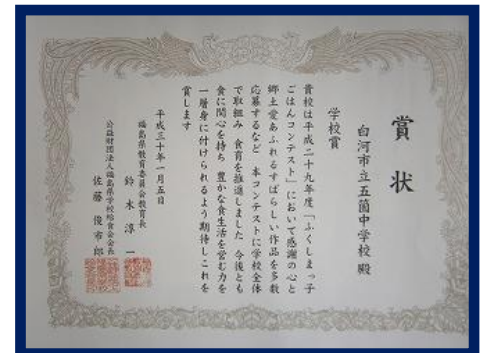 賞状
白河市立五箇中学校 殿
学校賞
貴校は平成二十九年度「ふくしまっ子
ごはんコンテスト」において感謝の心と
郷土愛あふれるすばらしい作品を多数
応募するなど 本コンテストに学校全体
で取組み 食育を推進しました 今後とも
食に関心を持ち 豊かな食生活を営む力を
一層身に付けられるよう期待しこれを
賞します
平成三十年一月五日
福島県教育委員会教育長
鈴木淳一
公益財団法人福島県学校給食会会長
佐藤俊市郎